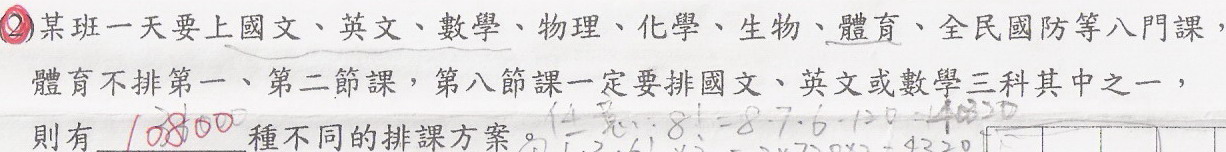 (2)某班一天要上國文、英文、數學、物理、化學、生物、體育、全民國防等八門課，
體育不排第一、第二節課，第八節課一定要排國文、英文或數學三科其中之一，
則有 10800 種不同的排課方案。 任意:8!=8·7·6·120=40320